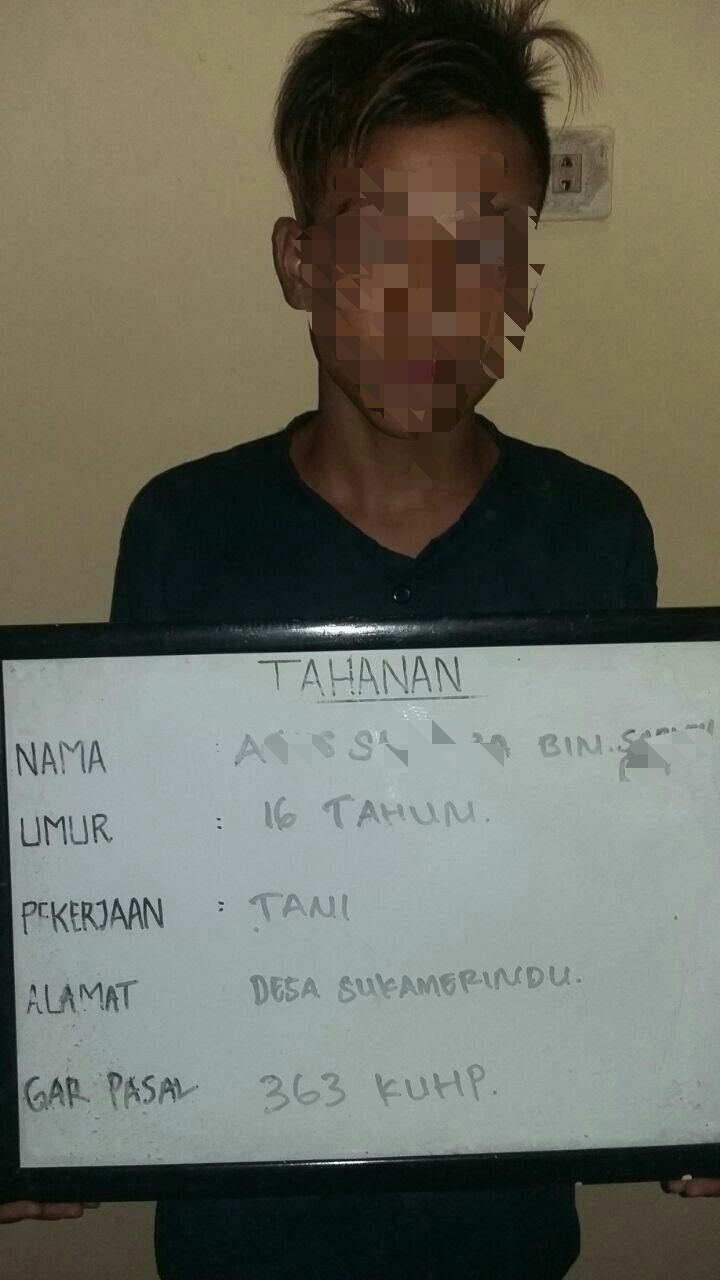 TAHANAN
NAMA : BIN.
UMUR : 16 TAHUN.
PEKERJAAN : TANI
ALAMAT DESA SUKAMERINDU.
GAR PASAL 363 KUHP.